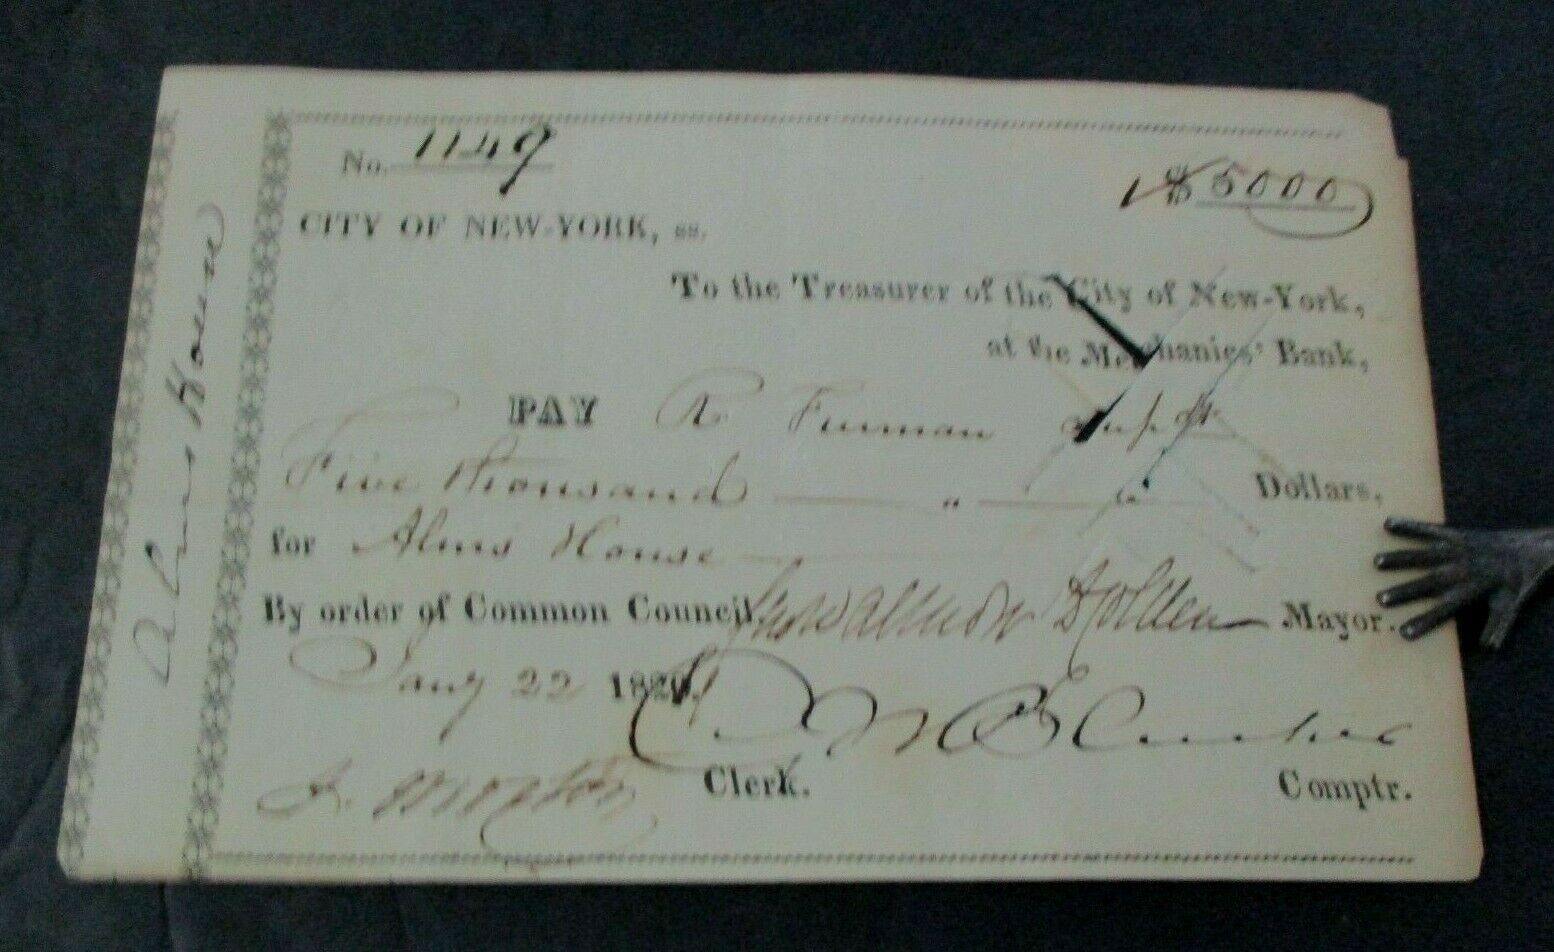 Alms House
No. 1149
$ 5000
CITY OF NEW-YORK, ss.
To the Treasurer of the City of New-York,
at the Mechanics' Bank,
PAY R Furman Supdt
Five thousand Dollars,
for Alms House
By order of Common Council, Mayor.
Jany 22 182
J. Morton Clerk. Comptr.